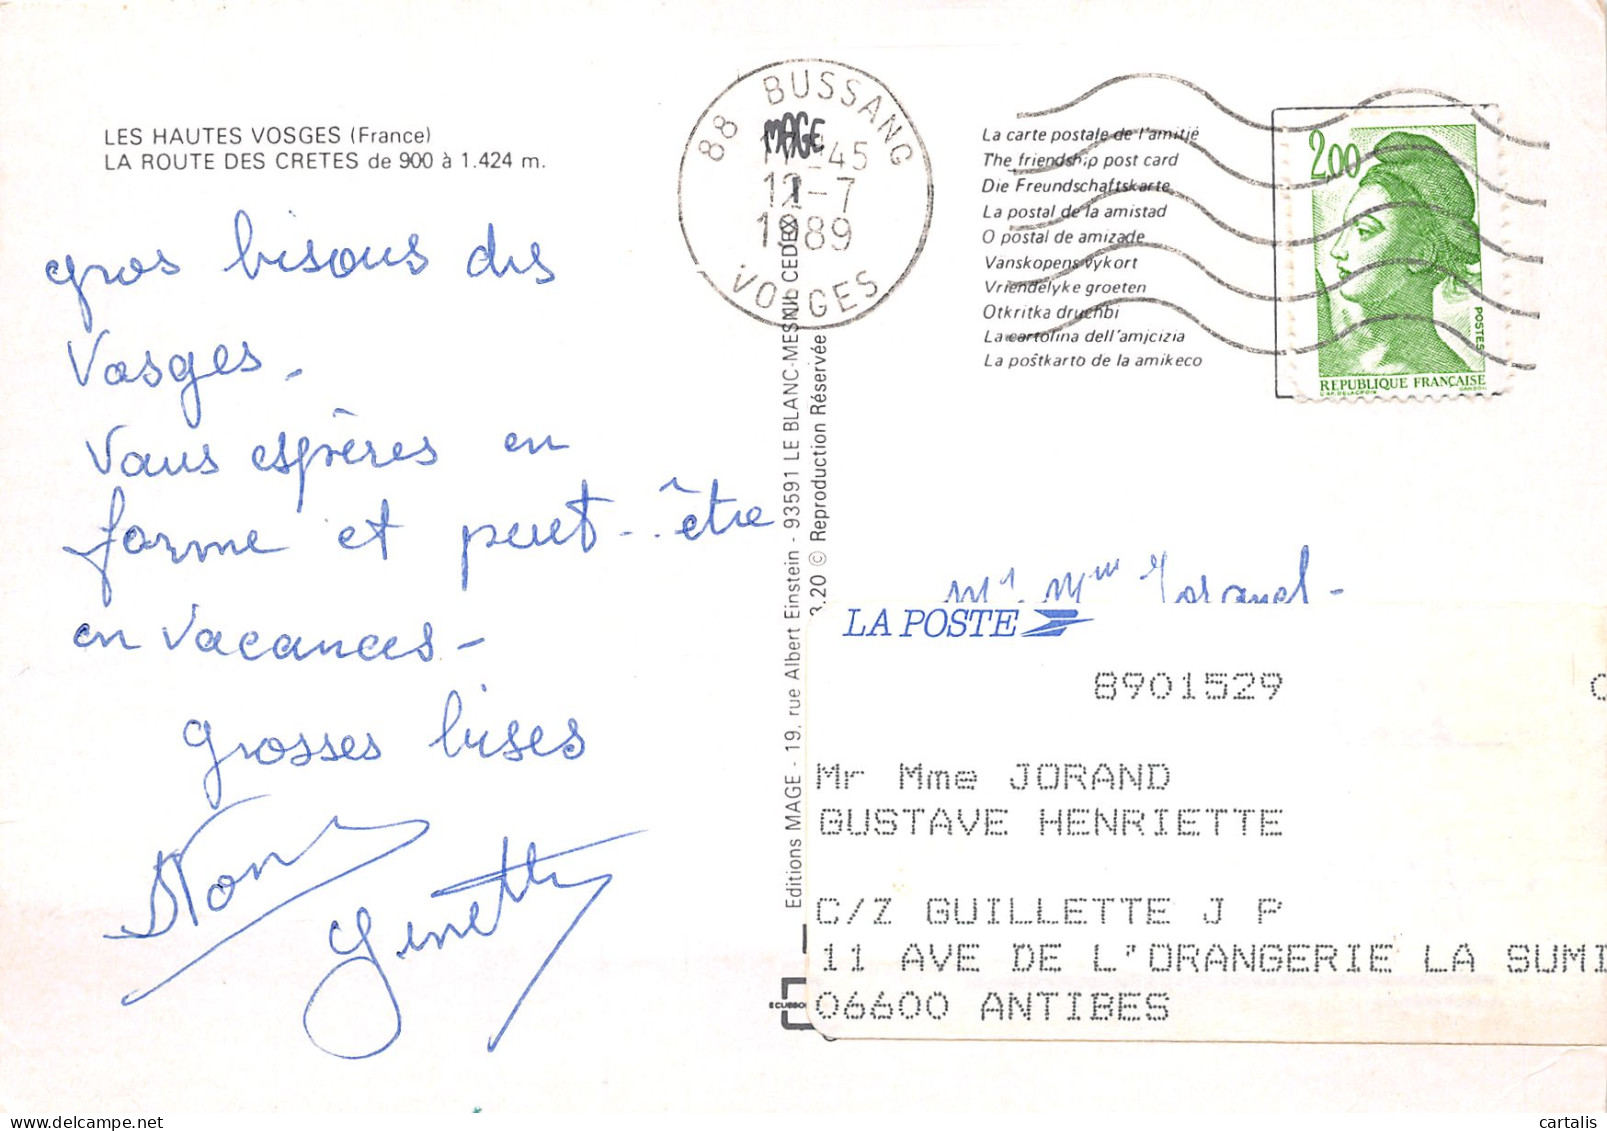 LES HAUTES VOSGES (France)
LA ROUTE DES CRETES de 900 à 1.424 m.
gros bisous des
Vosges_
Vous espères en
forme et peut-être
en vacances_
grosses bises
Ginette
88 BUSSANG
MAGE
45
12-7
1989
VOSGES
Editions MAGE - 19, rue Albert Einstein - 93591 LE BLANC-MESNIL CEDEX
3.20 © Reproduction Réservée
La carte postale de l'amitié
The friendship post card
Die Freundschaftskarte
La postal de la amistad
O postal de amizade
Vanskopens vykort
Vriendelyke groeten
Otkritka druchbi
La cartolina dell'amicizia
La poŝtkarto de la amikeco
2,00
POSTES
REPUBLIQUE FRANÇAISE
D'AP. DELACROIX GANDON
Mr. Mme Jorand_
LA POSTE
8901529
Mr Mme JORAND
GUSTAVE HENRIETTE
C/Z GUILLETTE J P
11 AVE DE L'ORANGERIE LA SUMI
06600 ANTIBES
cartalis